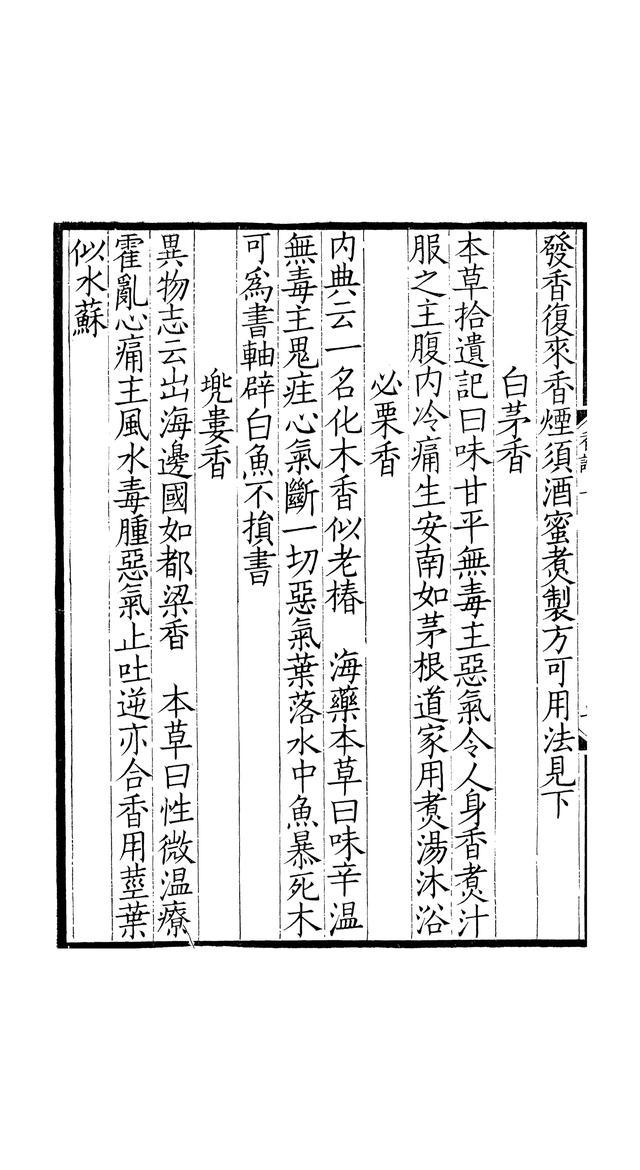 發香復來香煙須酒蜜煑製方可用法見下
白茅香
本草拾遺記曰味甘平無毒主惡氣令人身香煑汁
服之主腹内冷痛生安南如茅根道家用煑湯沐浴
必栗香
内典云一名化木香似老椿　海藥本草曰味辛温
無毒主鬼疰心氣斷一切惡氣葉落水中魚暴死木
可爲書軸辟白魚不損書
兠婁香
異物志云出海邊國如都梁香　本草曰性微温療
霍亂心痛主風水毒腫惡氣止吐逆亦合香用莖葉
似水蘇